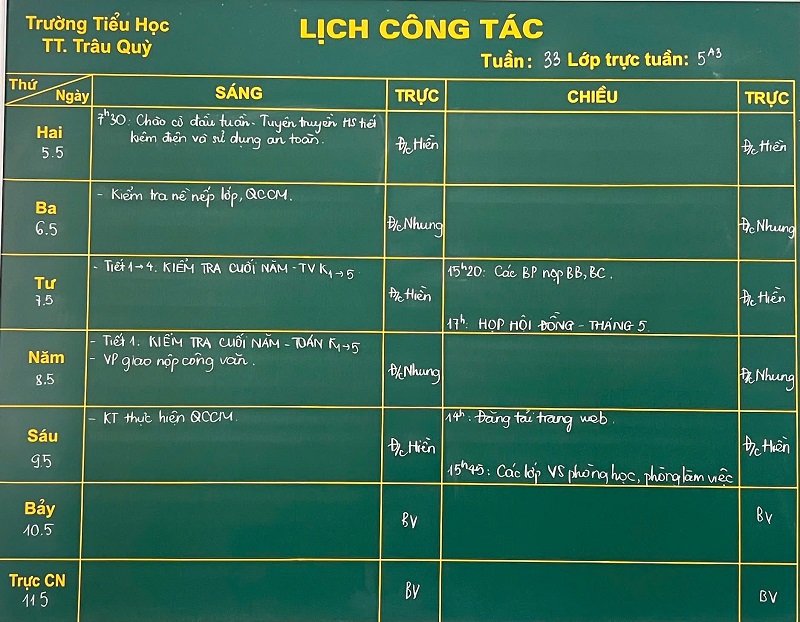 Trường Tiểu Học
TT. Trâu Quỳ
LỊCH CÔNG TÁC
Tuần: 33 Lớp trực tuần: 5A3
Thứ Ngày SÁNG TRỰC CHIỀU TRỰC
Hai
5.5
7h30: Chào cờ đầu tuần - Tuyên truyền HS tiết
kiệm điện và sử dụng an toàn.
Đ/c Hiền
Đ/c Hiền
Ba
6.5
- Kiểm tra nề nếp lớp, QCCM.
Đ/c Nhung
Đ/c Nhung
Tư
7.5
- Tiết 1→4. KIỂM TRA CUỐI NĂM - TV K1→5
Đ/c Hiền
15h20: Các BP nộp BB, BC.
17h: HỌP HỘI ĐỒNG - THÁNG 5.
Đ/c Hiền
Năm
8.5
- Tiết 1. KIỂM TRA CUỐI NĂM - TOÁN K1→5
- VP giao nộp công văn.
Đ/c Nhung
Đ/c Nhung
Sáu
9.5
- KT thực hiện QCCM.
Đ/c Hiền
14h: Đăng tải trang web.
15h45: Các lớp VS phòng học, phòng làm việc
Đ/c Hiền
Bảy
10.5
BV
BV
Trực CN
11.5
BV
BV